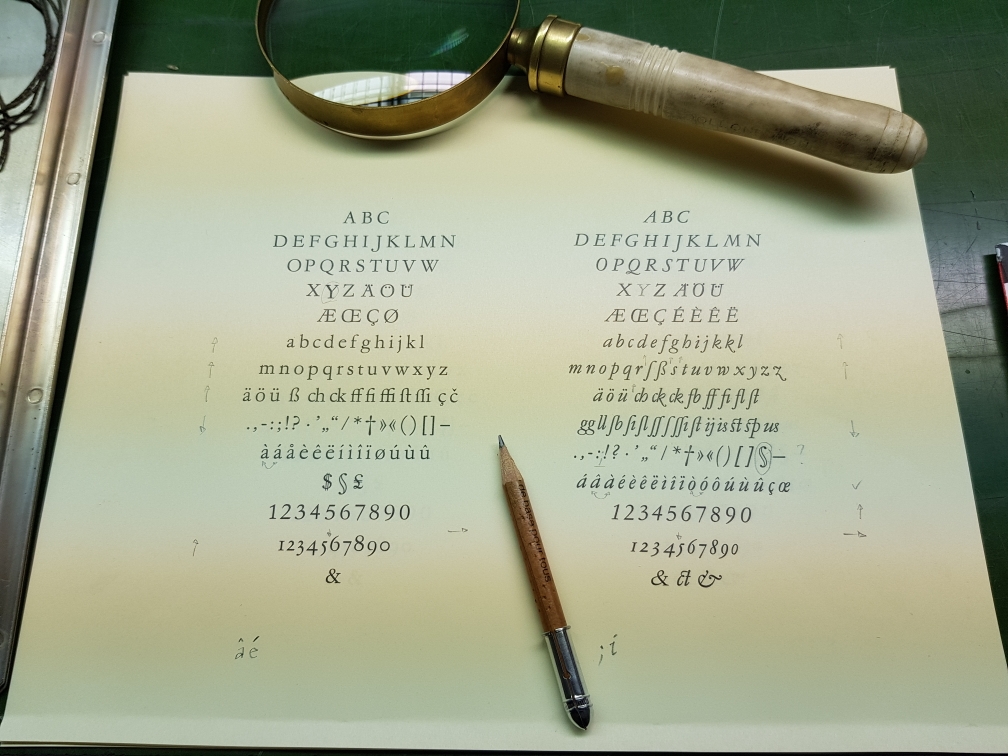 A B C
D E F G H I J K L M N
O P Q R S T U V W
X Y Z Ä Ö Ü
Æ Œ Ç Ø
a b c d e f g h i j k l
m n o p q r s t u v w x y z
ä ö ü ß ch ck ff fi ffi ſt ſſi çč
. , - : ; ! ? · ’ „ “ / * † » « ( ) [ ] –
à á å è ê ë í ì î ï ø ú ù û
$ § £
1 2 3 4 5 6 7 8 9 0
1 2 3 4 5 6 7 8 9 0
&
â é
A B C
D E F G H I J K L M N
O P Q R S T U V W
X Y Z Ä Ö Ü
Æ Œ Ç É È Ê Ë
a b c d e f g h i j k k l
m n o p q r ſ ß s t u v w x y z z
ä ö ü ch ck ck fb ff fi fl ſt
gg ll ſb ſi ſl ſſ ſſ ſſi ſt ij is st sp us
. , - : ; ! ? · ’ „ “ / * † » « ( ) [ ] § – ?
á â à é è ê ë ì í î ï ò ó ô ú ù û ç œ
1 2 3 4 5 6 7 8 9 0
1 2 3 4 5 6 7 8 9 0
& ct &
; í